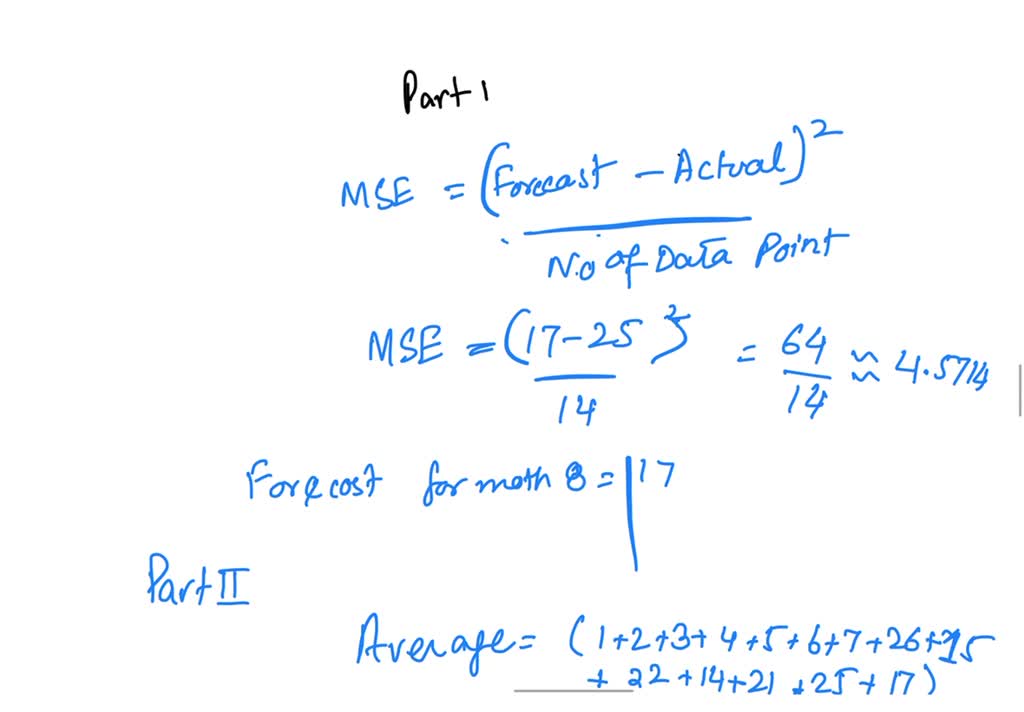 Part 1
MSE = (Forecast - Actual)²
No of Data Point
MSE = (17-25)² = 64 ≈ 4.5714
14 14
Forecost for moth 8 = | 17
Part II
Average = (1+2+3+4+5+6+7+26+15
+ 22+14+21+25+17)